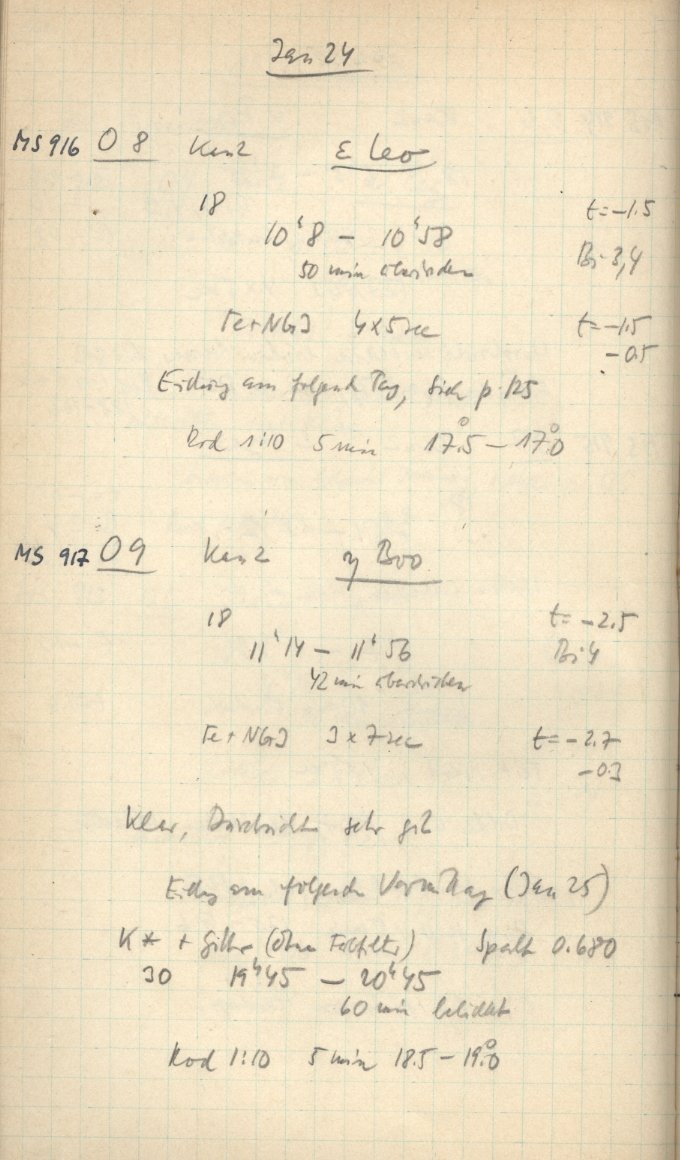 Jan 24
MS 916 08 Kam 2 ε Leo
18 t=-1.5
10ʰ8 - 10ʰ58 Bi 3,4
50 min
Fe+NG3 4x5 sec t=-1.5
-0.5
Eichung am folgend Tag, Sieh p. 125
Rod 1:10 5 min 17°.5 - 17°.0
MS 917 09 Kam 2 η Boo
18 t=-2.5
11ʰ14 - 11ʰ56 Bi 4
42 min
Fe + NG3 3 x 7 sec t=-2.7
-0.3
Klar, Durchsicht sehr gut
Eichung am folgenden Vormittag (Jan 25)
K* + Gitter (ohne Farbfilter) Spalt 0.680
30 19ʰ45 - 20ʰ45
60 min belichtet
Rod 1:10 5 min 18.5 - 19°.0